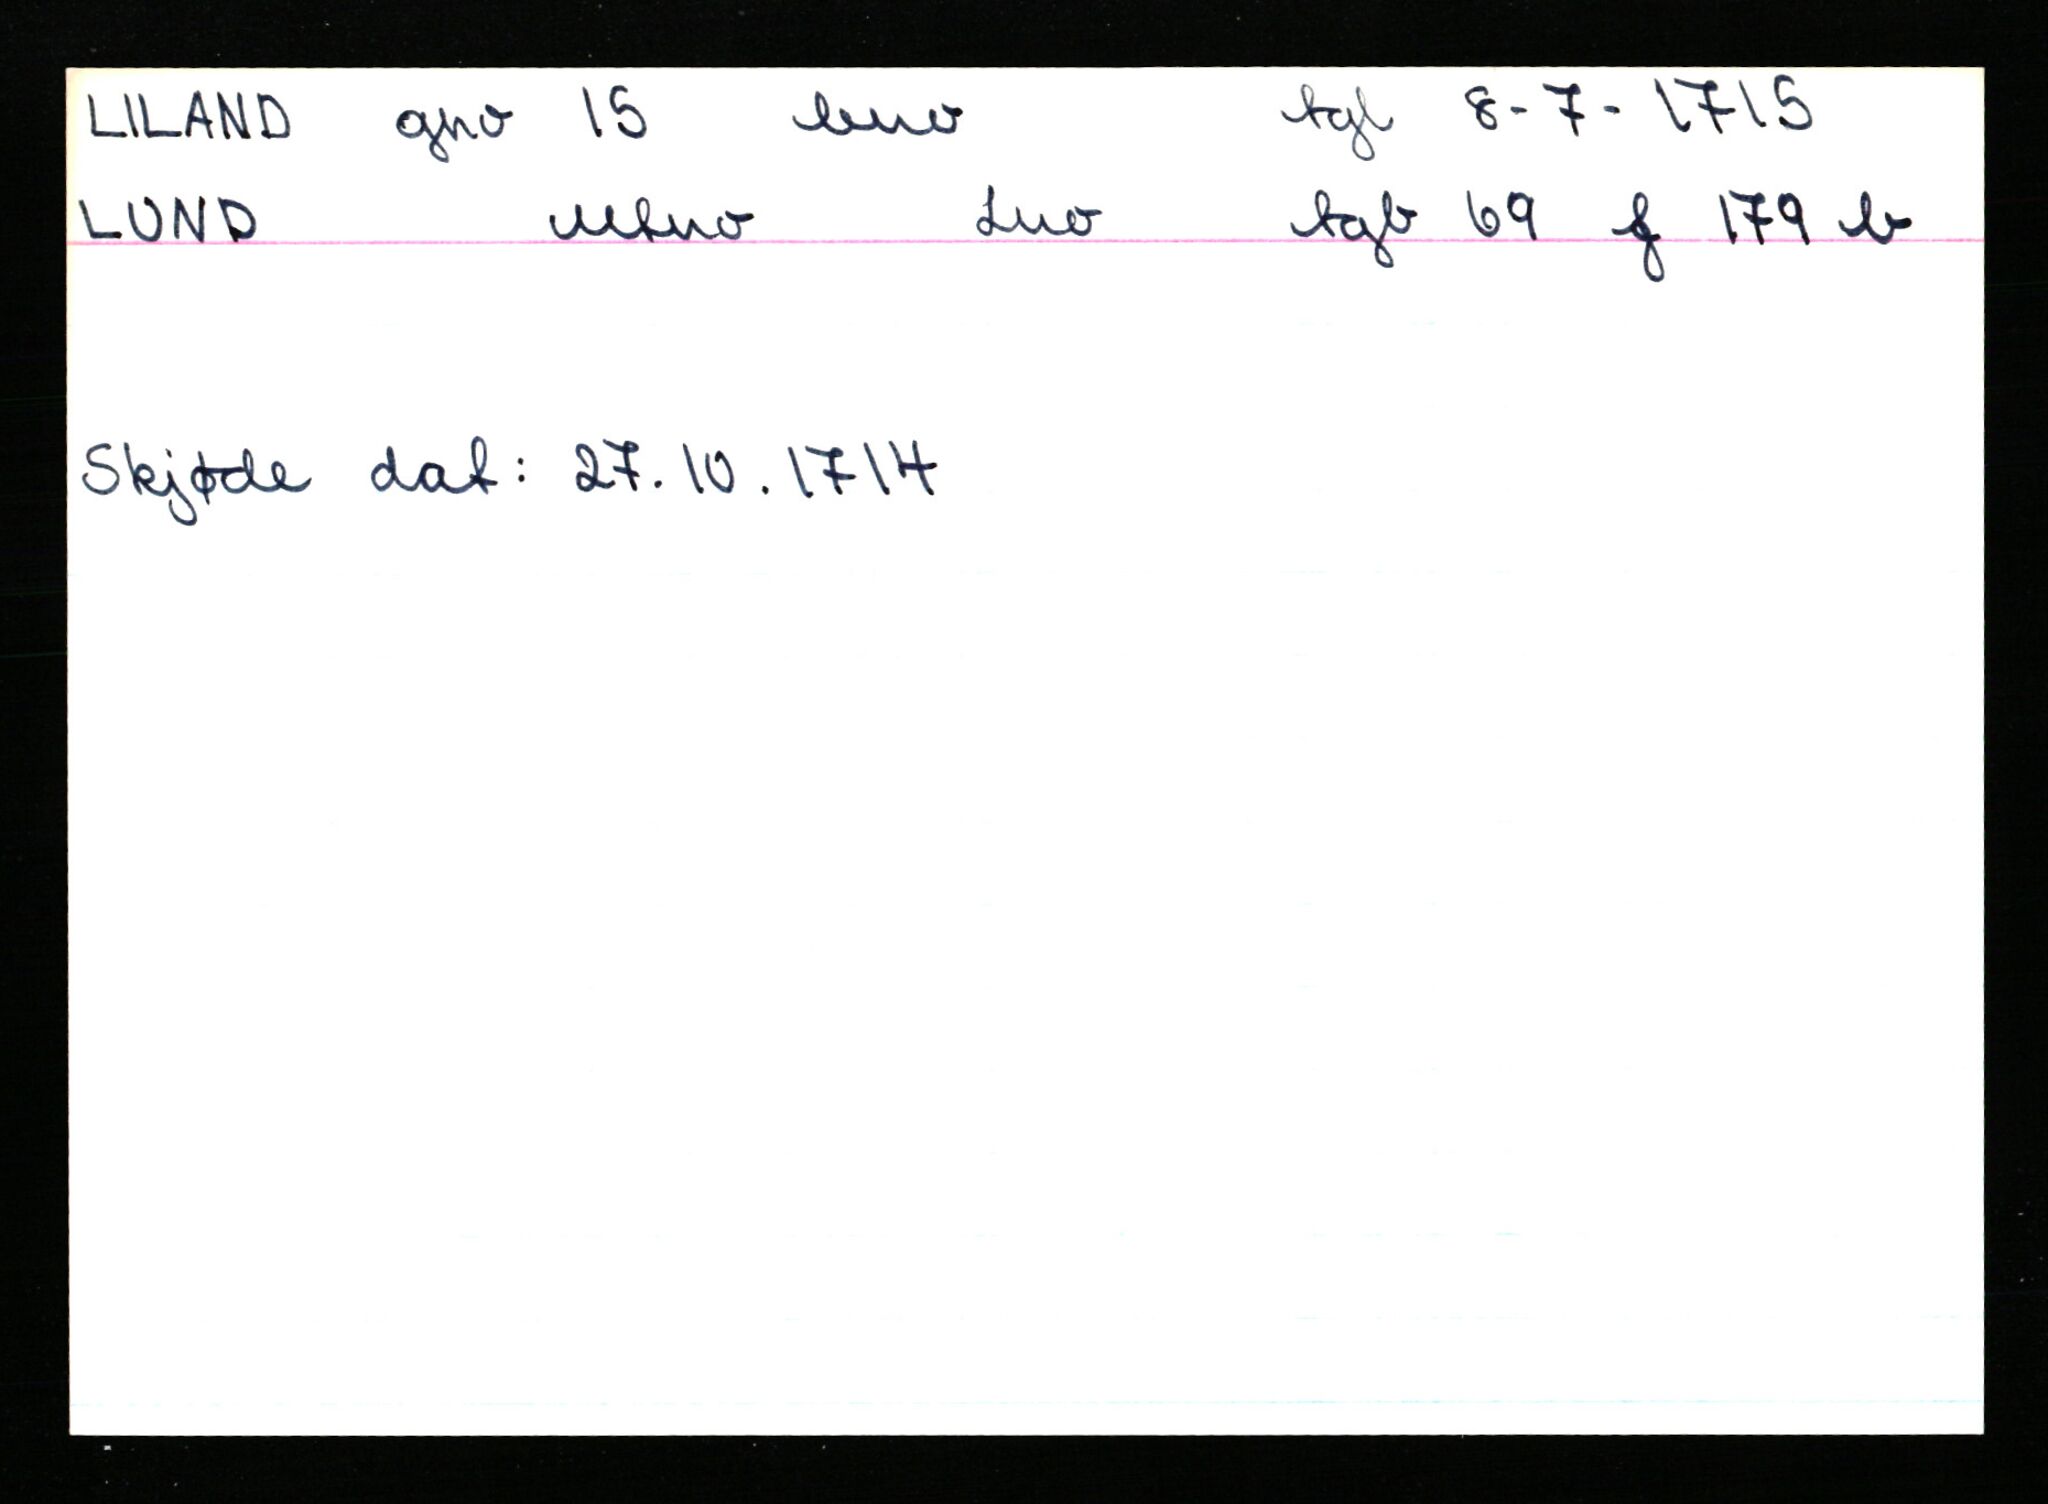 LILAND gno 15 bno tgl 8-7-1715
LUND Mtno Lno tgb 69 f 179 b
Skjøde dat: 27.10.1714